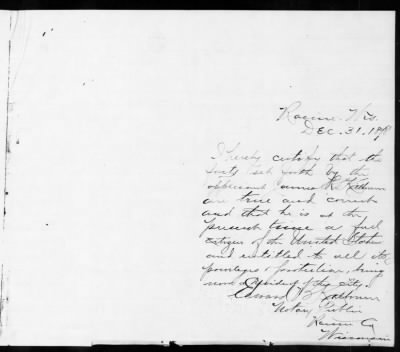 Racine. Wis.
DEC. 31. 18
I hereby certify that the
facts set forth by the
applicant James R.
are true and correct
and that he is at the
present time a full
citizen of the United States
and entitled to all its
privileges & protection, being
now a resident of this city.
Edward
Notary Public
Racine Co
Wisconsin